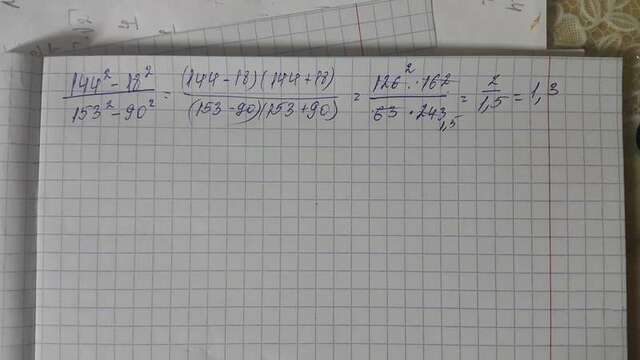 144² - 18² / 153² - 90² = (144 - 18)(144 + 18) / (153 - 90)(153 + 90) = 126² · 162 / 63 · 243 1,5 = 2 / 1,5 = 1,3